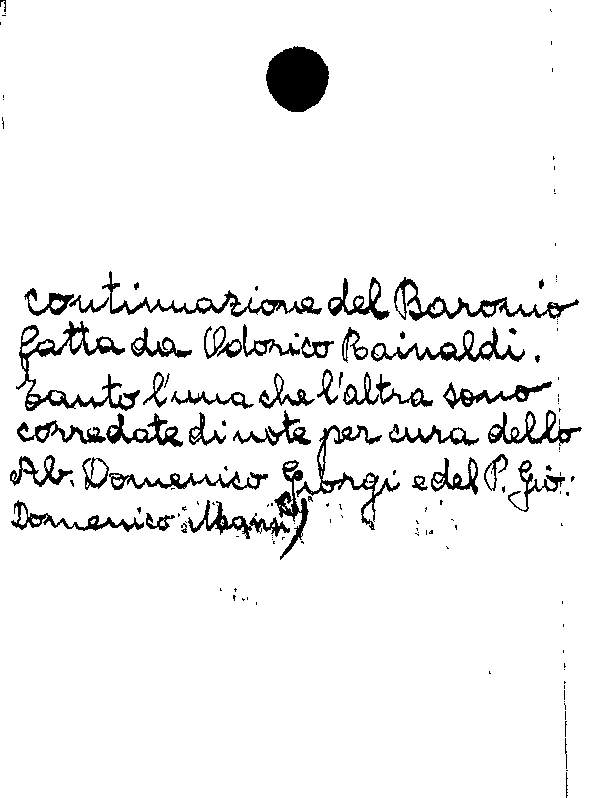 continuazione del Baronio
fatta da Odorico Rainaldi.
Tanto l'una che l'altra sono
corredate di note per cura dello
Ab. Domenico Giorgi e del P. Gio:
Domenico Mansi)